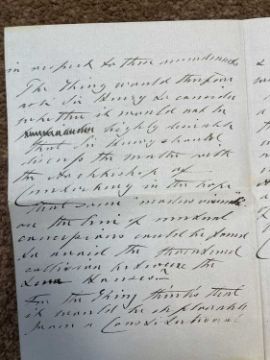 in respect to these amendments
The King would therefore
ask Sir Henry to consider
whether it would not be
highly desirable
that Sir Henry should
discuss the matter with
the Archbishop of
Canterbury in the hope
that some "modus vivendi"
on the lines of mutual
concessions could be found
to avoid the threatened
collision between the
two Houses.
For the King thinks that
it would be deplorable
from a Constitutional